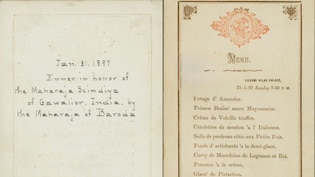 Jan. 31. 1897
Dinner in honor of
the Maharaja Scindiya
of Gwalior, India, by
the Maharaja of Baroda
MENU.
LUXMI VILAS PALACE,
31-1-97 Sunday 7-30 P. M.
Potage d' Amandes.
Poisson Braisé sauce Mayonnaise
Crême de Volaille truffée.
Côtelettes de mouton à l' Italienne.
Selle de perdreau rôtie aux Petits Pois.
Fonds d' artichauts à la demi-glace.
Carry de Macedoine de Legumes et Riz.
Pommes à la crême.
Glacé de Pistaches.